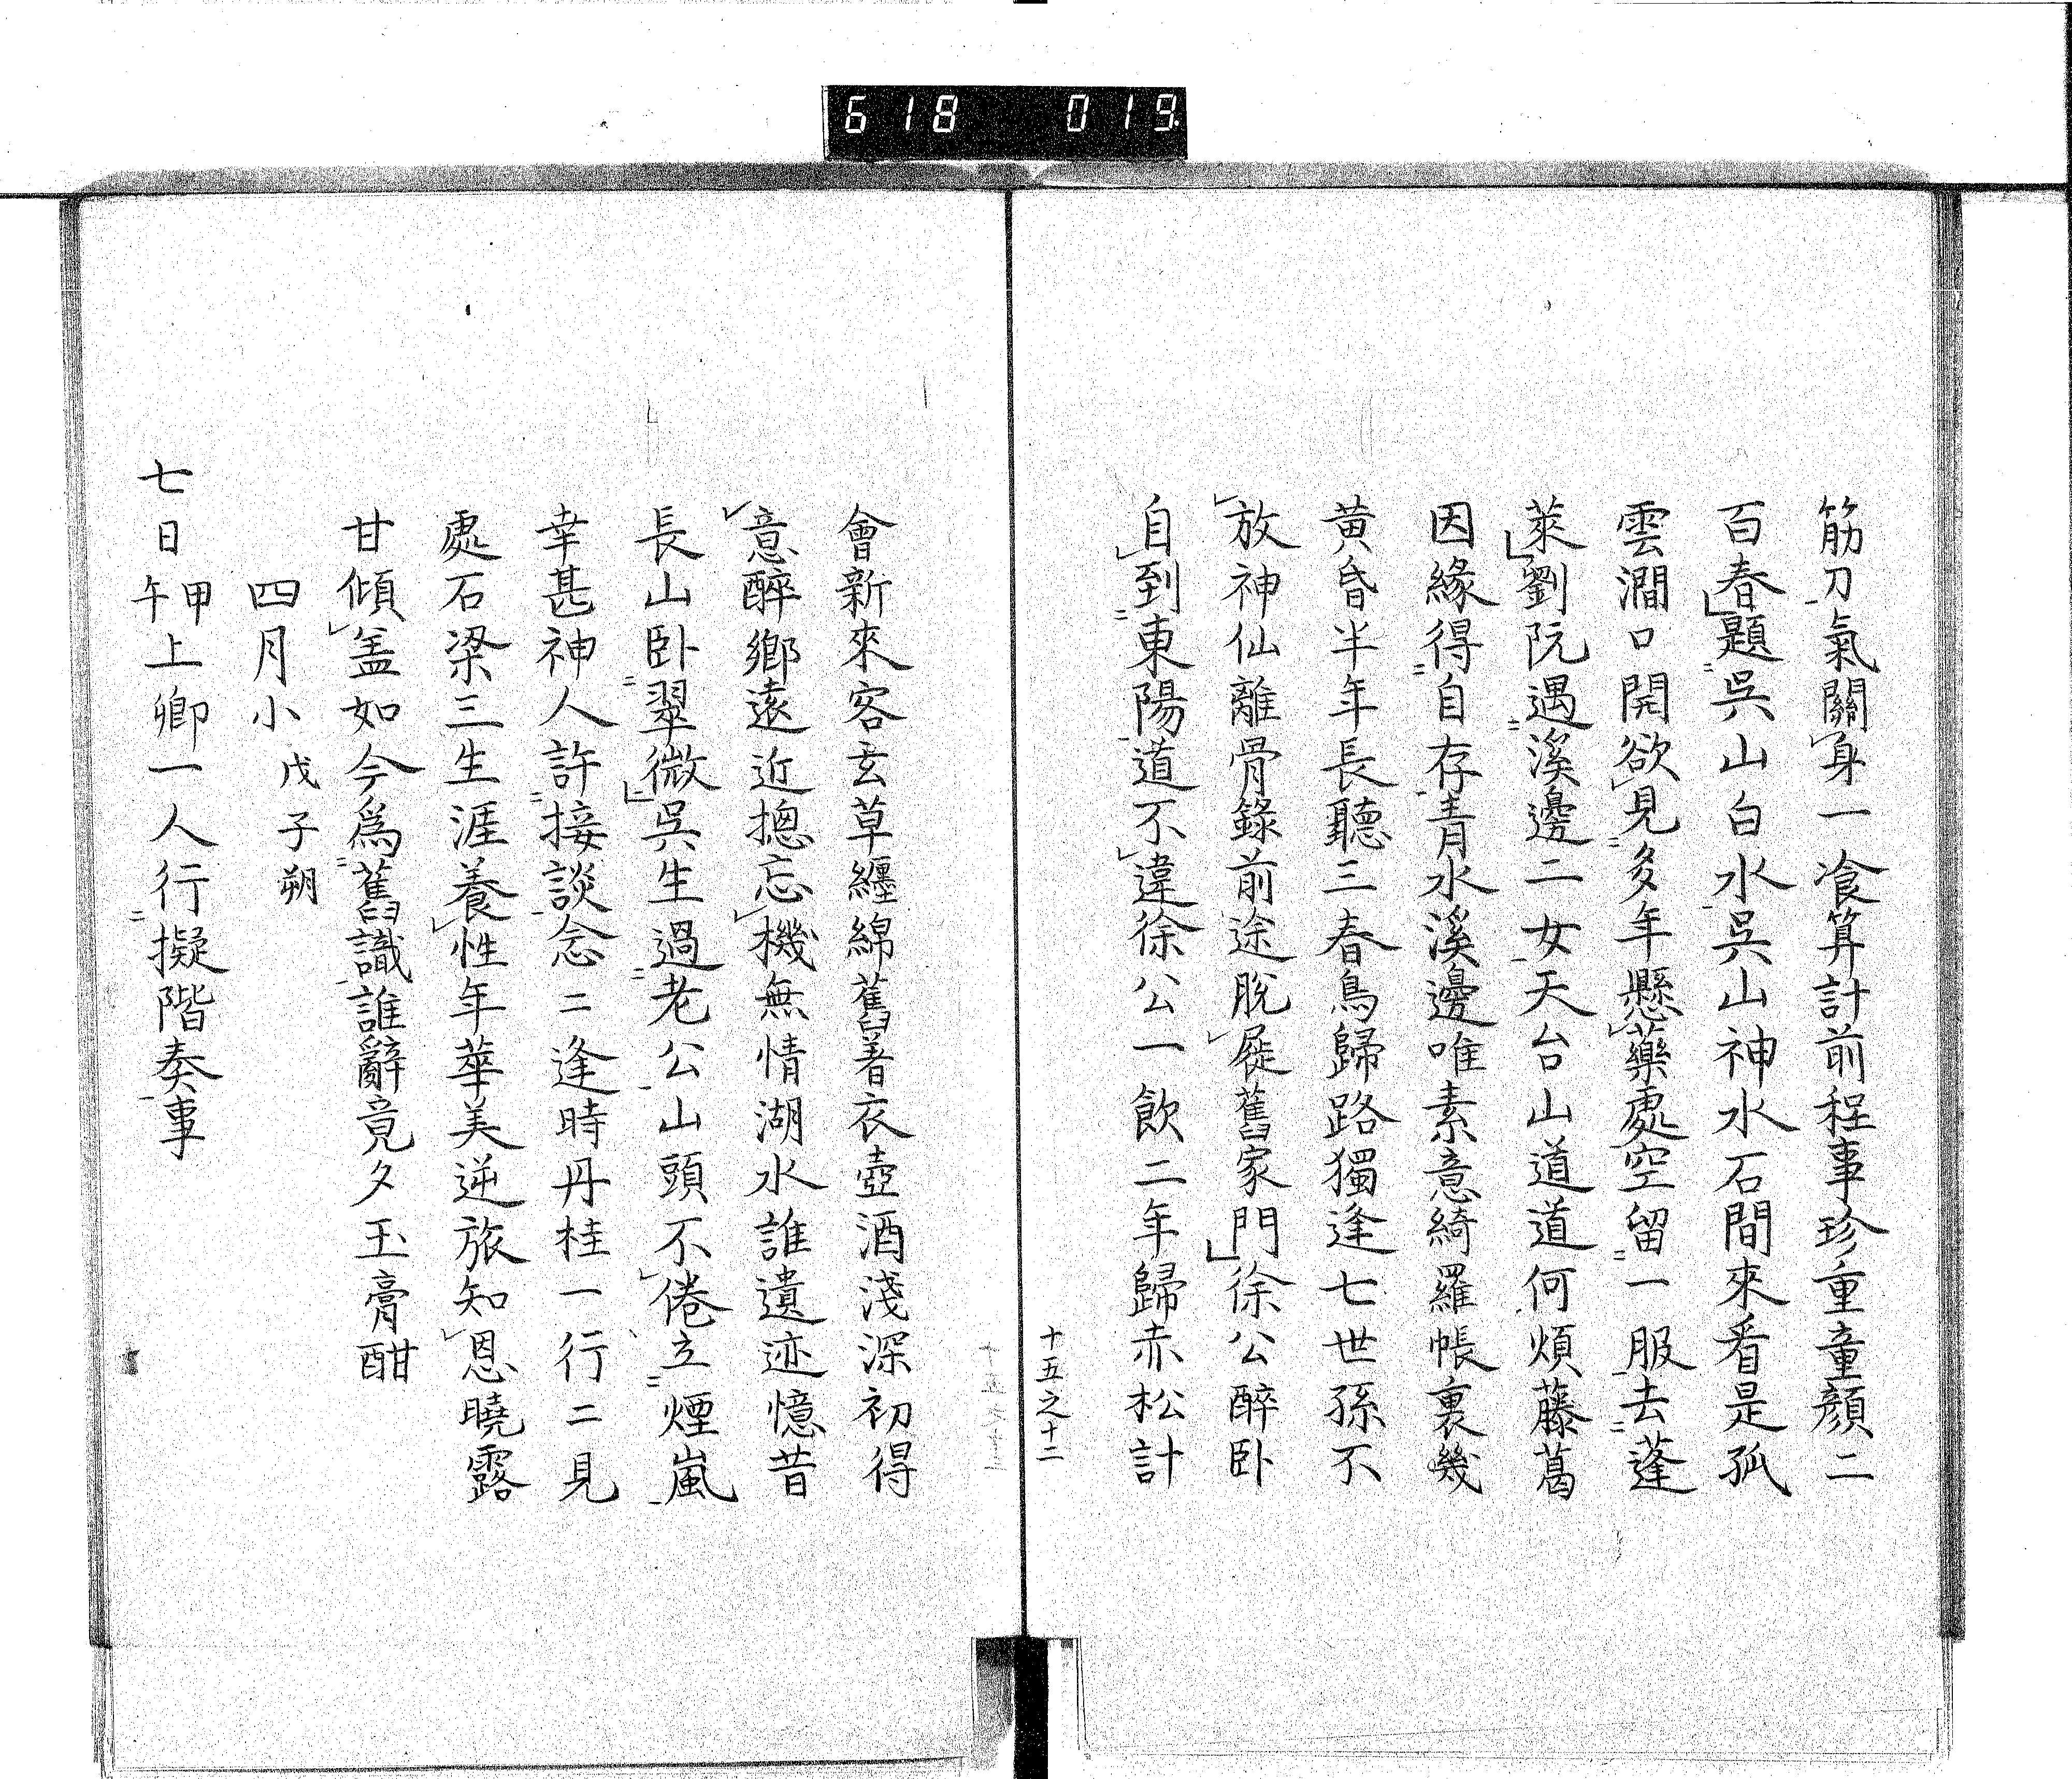 618 019
筋刀氣關身一飡算計前程事珍重童顏二
百春題吳山白水吳山神水石間來看是孤
雲澗口開欲見多年懸藥處空留一服去蓬
萊劉阮遇溪邊二女天台山道道何煩藤葛
因緣得自存青水溪邊唯素意綺羅帳裏幾
黄昏半年長聽三春鳥歸路獨逢七世孫不
放神仙離骨錄前途脫屣舊家門徐公醉卧
自到東陽道不違徐公一飲二年歸赤松計
十五之十二
會新來客玄草纏綿舊著衣壺酒淺深初得
意醉鄉遠近摠忘機無情湖水誰遺迹憶昔
長山卧翠微吳生過老公山頭不倦立煙嵐
幸甚神人許接談念二逢時丹桂一行二見
處石梁三生涯養性年華美逆旅知恩曉露
甘傾盖如今爲舊識誰辭竟夕玉膏酣
四月小戊子朔
七日甲午上卿一人行擬階奏事